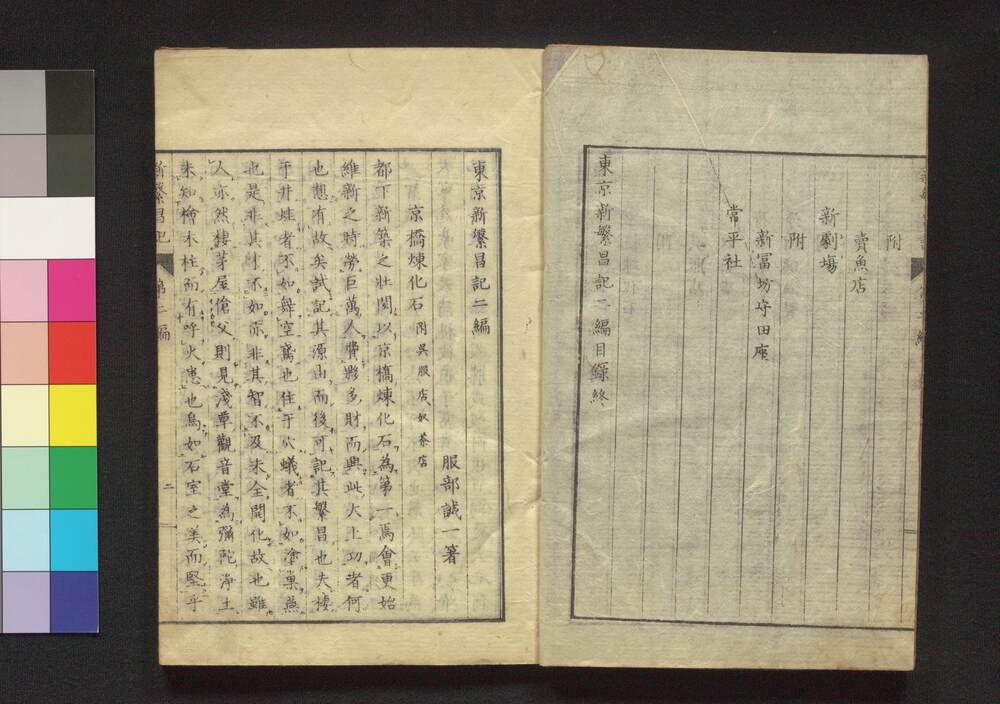 附
賣魚店
新劇塲
附
新冨坊守田座
常平社
東京新繁昌記二編目錄終
東京新繁昌記二編
服部誠一著
京橋煉化石附呉服店、奴茶店
都下新築之壯関以京橋煉化石為第一焉會更始
維新之時勞巨萬人費夥多財而興此大土功者何
也想有故矣試記其源由而後可記其繁昌也夫棲
于井蛙者不如舞空鳶也住于穴蟻者不如塗巢燕
也是非其才不如而非其智不及未全開化故也雖
人亦然棲茅屋傖父則見淺草觀音堂為彌陀淨土
未知檜木柱而有呼火患也烏如石室之美而堅乎
新繁昌記
第二編
二